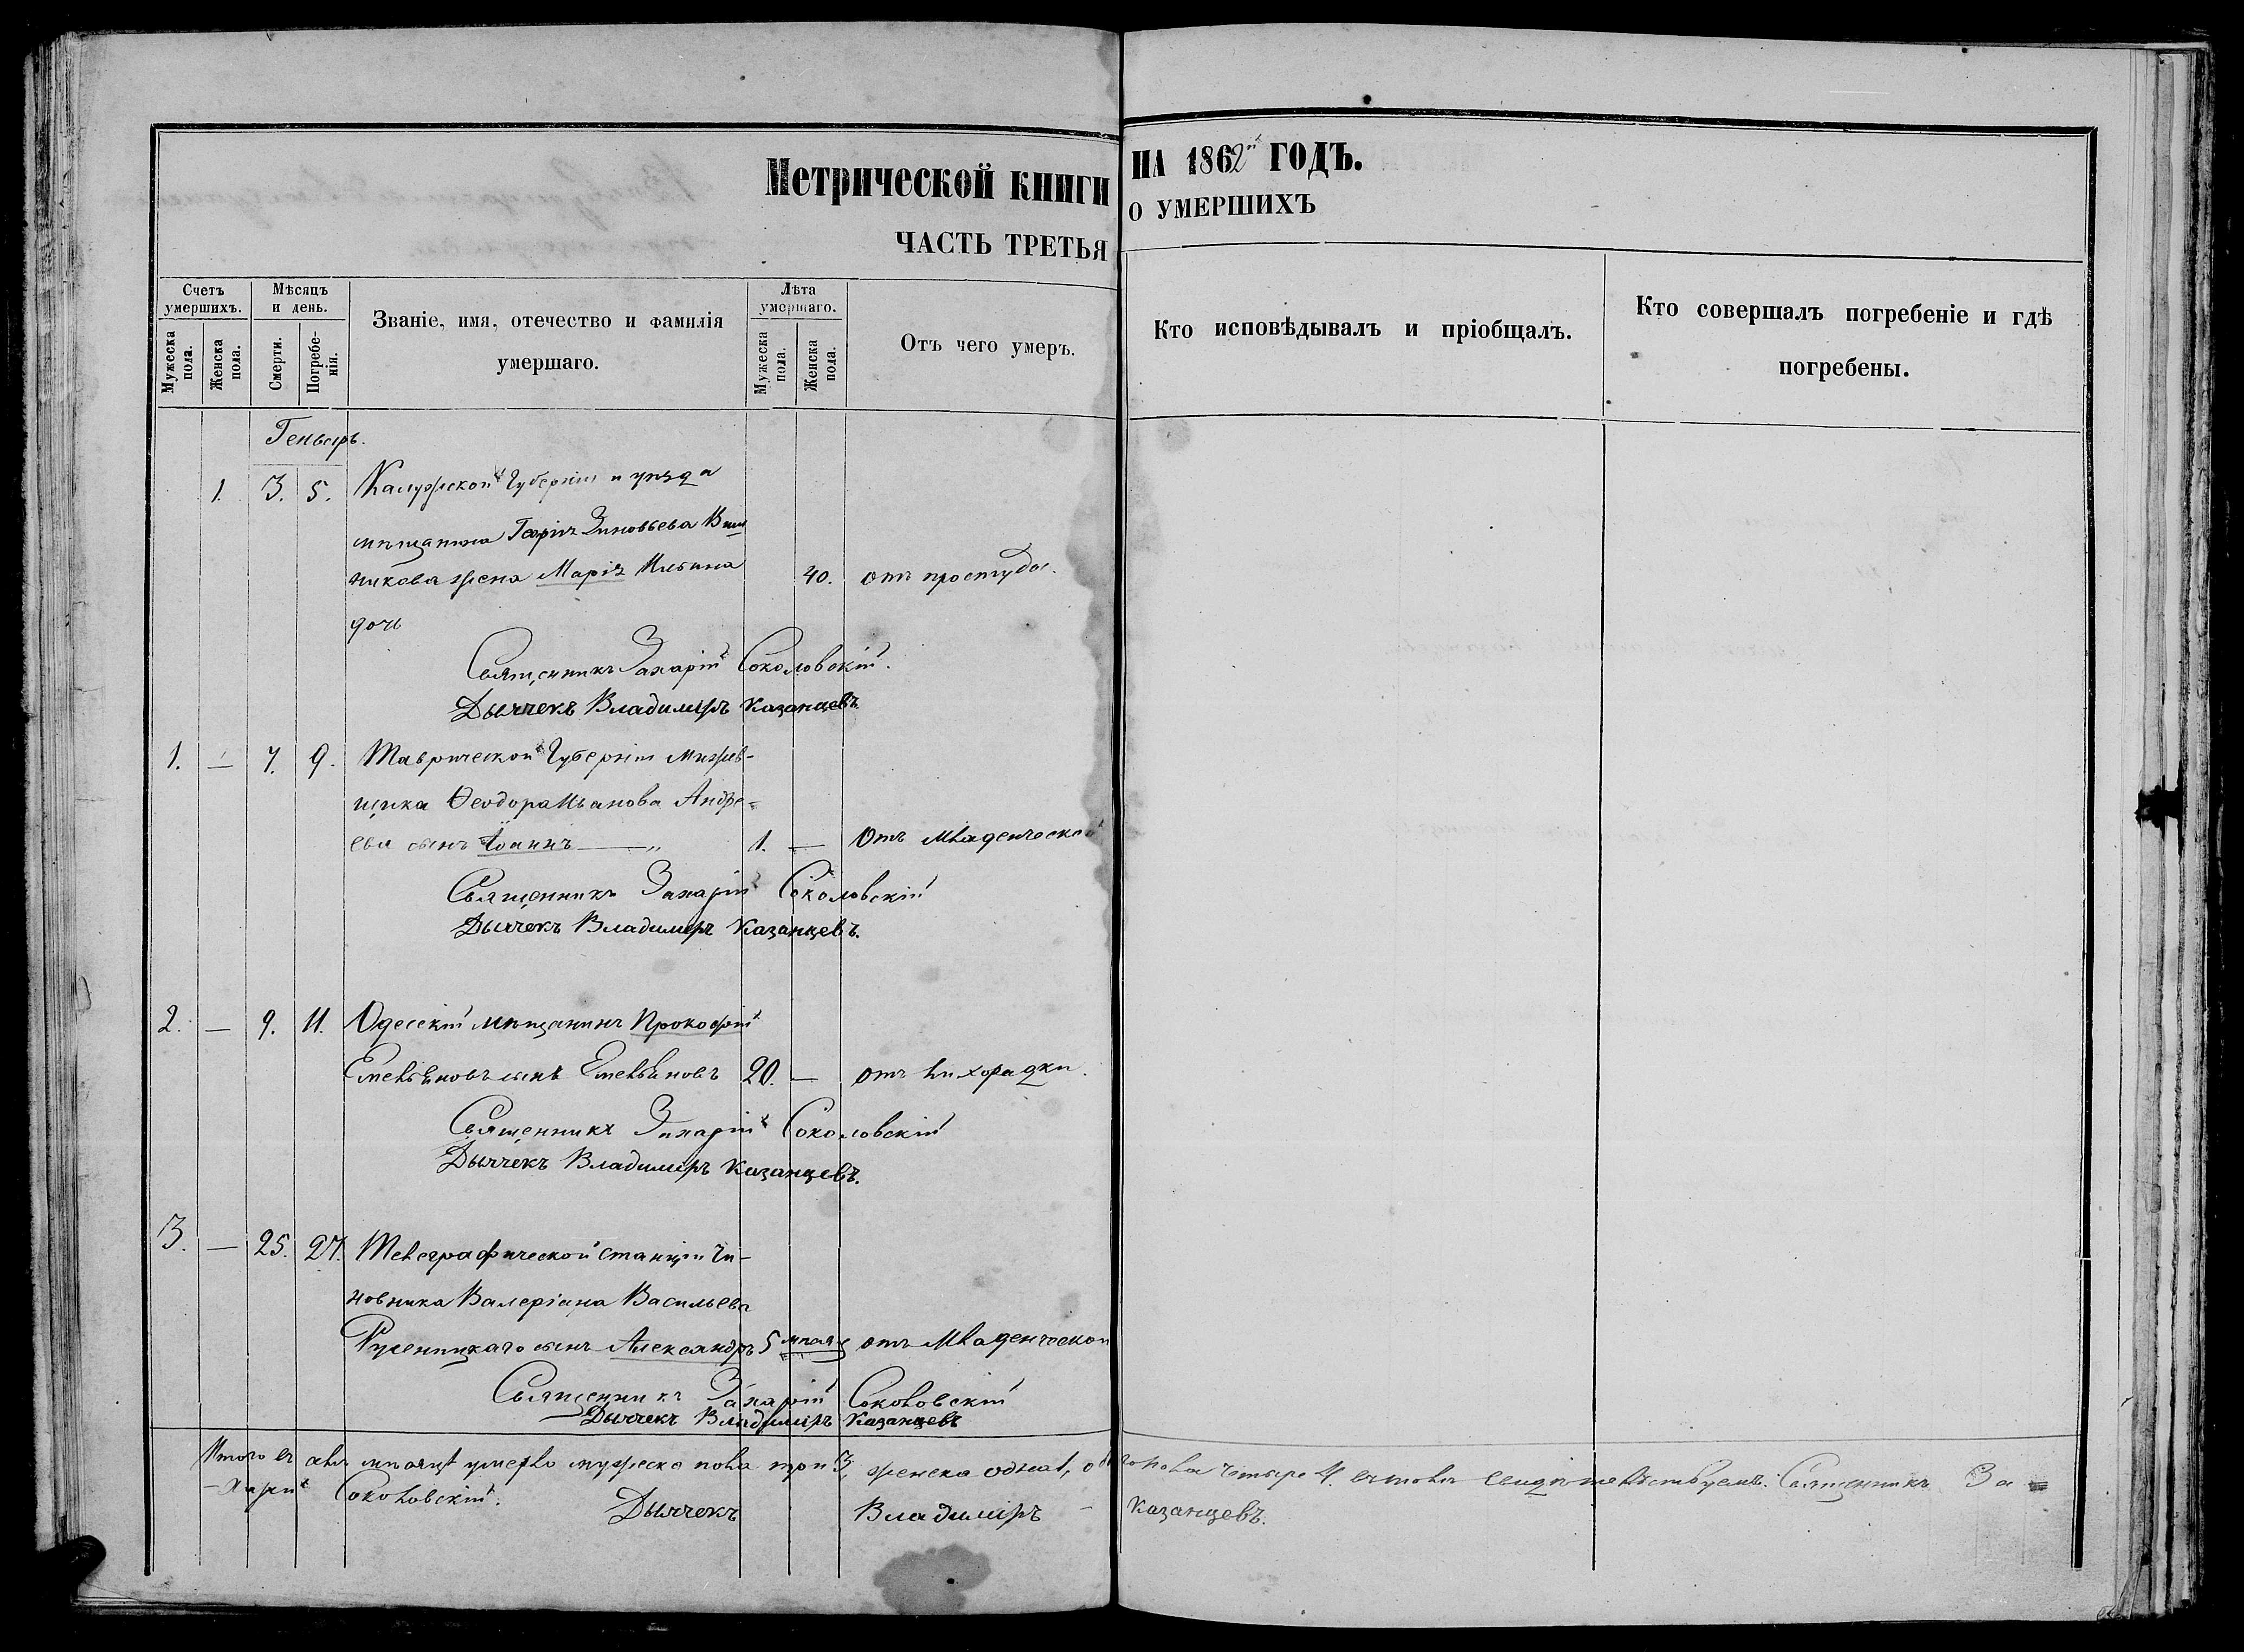 Метрической книги на 1862й годъ.
часть третья о умершихъ
Счетъ умершихъ.
Мужеска пола.
Женска пола.
Мѣсяцъ и день.
Смерти.
Погребенія.
Званіе, имя, отечество и фамилія
умершаго.
Лѣта умершаго.
Мужеска пола.
Женска пола.
Отъ чего умеръ.
Кто исповѣдывалъ и пріобщалъ.
Кто совершалъ погребеніе и гдѣ
погребены.
Генварь.
1. 3. 5. Калужской Губерніи и уѣзда
мѣщанина Георгія Зиновьева
никова жена Марія Ильина 40. отъ простуды.
дочь
Священникъ Захарій Соколовскій.
Дьячекъ Владимиръ Казанцевъ.
1. — 7. 9. Таврической Губерніи
щика Ѳеодора Иванова Андре-
ева сынъ Іоаннъ 1. — Отъ младенческой
Священникъ Захарій Соколовскій
Дьячекъ Владимиръ Казанцевъ.
2. — 9. 11. Одесскій мѣщанинъ Прокофій
Емельяновъ сынъ Емельяновъ 20. — отъ лихорадки.
Священникъ Захарій Соколовскій
Дьячекъ Владимиръ Казанцевъ.
3. — 25. 27. Телеграфической станціи чи-
новника Валеріана Васильева
сынъ Александръ 5 мѣсяц отъ младенческой
Священникъ Захарій Соколовскій
Дьячекъ Владиміръ Казанцевъ
Итого въ мѣсяцѣ умерло мужеска пола три 3, женска одна 1, обоего пола четыре 4. въ томъ свидѣтельствуемъ. Священникъ За-
-харій Соколовскій. Дьячекъ Владиміръ Казанцевъ.